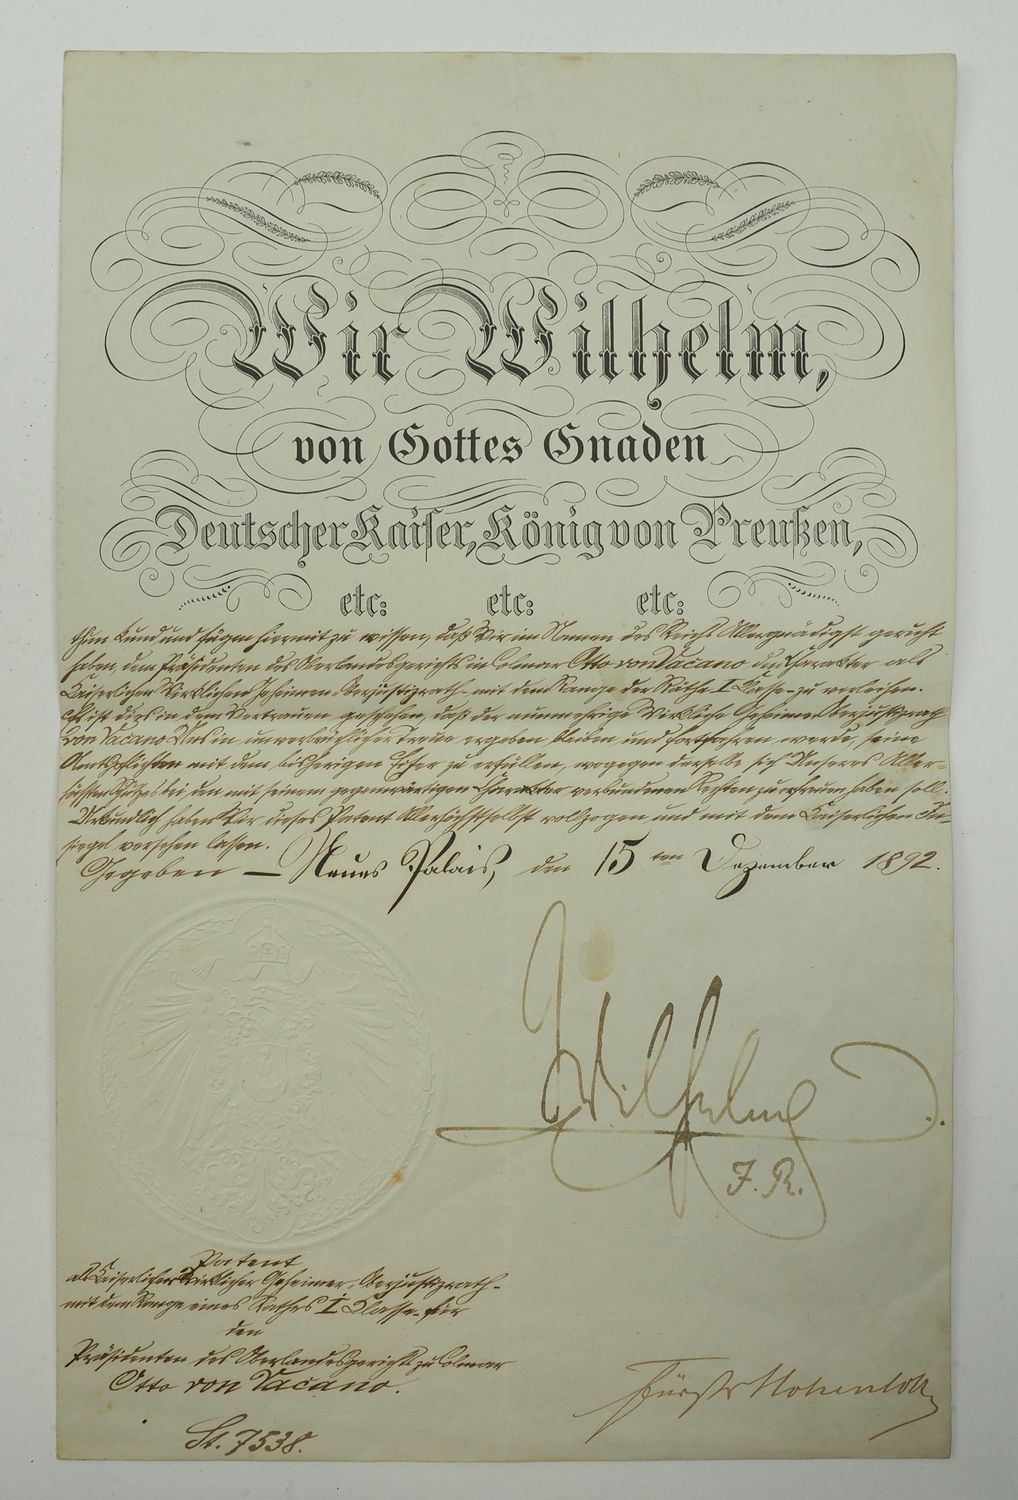 Wir Wilhelm,
von Gottes Gnaden
Deutscher Kaiser, König von Preußen,
etc: etc: etc:
thun kund und fügen hiermit zu wissen, daß Wir im Namen des Reichs Allergnädigst geruht
haben, dem Präsidenten des Oberlandesgerichts in Colmar Otto von Vacano den Charakter als
Kaiserlichen Wirklichen Geheimen Oberjustizrath mit dem Range der Räthe I Klasse zu verleihen.
Es ist dies in dem Vertrauen geschehen, daß der nunmehrige Wirkliche Geheime Oberjustizrath
von Vacano Uns in unverbrüchlicher Treue ergeben bleiben und fortfahren werde, seine
Amtspflichten mit dem bisherigen Eifer zu erfüllen, wogegen derselbe sich Unseres Aller-
höchsten Schutzes bei den mit seinem gegenwärtigen Charakter verbundenen Rechten zu erfreuen haben soll.
Urkundlich haben Wir dieses Patent Allerhöchstselbst vollzogen und mit dem Kaiserlichen In-
siegel versehen lassen.
Gegeben – Neues Palais, den 15ten Dezember 1892.
Wilhelm
J. R.
Patent
als Kaiserlicher Wirklicher Geheimer Oberjustizrath
mit dem Range eines Rathes I Classe für
den
Präsidenten des Oberlandesgerichts zu Colmar
Otto von Vacano.
St. 7538.
Fürst Hohenlohe